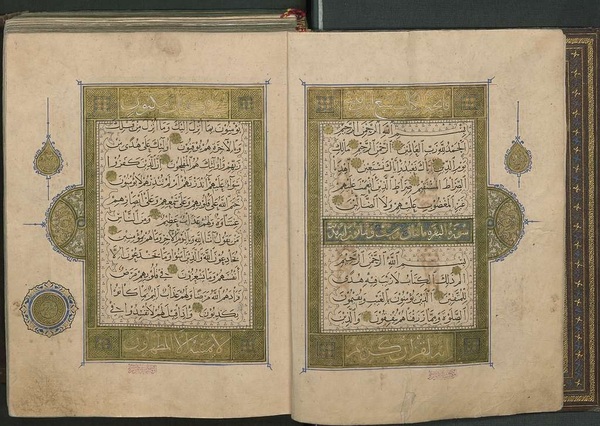 بسم الله الرحمن الرحيم
الحمد لله رب العالمين الرحمن الرحيم مالك
يوم الدين اياك نعبد واياك نستعين اهدنا
الصراط المستقيم صراط الذين انعمت عليهم
غير المغضوب عليهم ولا الضالين
سورة البقرة مائتان
بسم الله الرحمن الرحيم
الم ذلك الكتاب لا ريب فيه هدى
للمتقين الذين يؤمنون بالغيب ويقيمون
الصلوة ومما رزقناهم ينفقون والذين
لقرآن كريم
يؤمنون بما انزل اليك وما انزل من قبلك
وبالاخرة هم يوقنون اولئك على هدى من
ربهم واولئك هم المفلحون ان الذين كفروا
سواء عليهم ءانذرتهم ام لم تنذرهم لا يؤمنون
ختم الله على قلوبهم وعلى سمعهم وعلى ابصارهم
غشاوة ولهم عذاب عظيم ومن الناس
من يقول امنا بالله وباليوم الاخر وما هم بمؤمنين
يخادعون الله والذين امنوا وما يخدعون الا
انفسهم وما يشعرون في قلوبهم مرض
فزادهم الله مرضا ولهم عذاب اليم بما كانوا
يكذبون واذا قيل لهم لا تفسدوا في
لا يمسه الا المطهرون